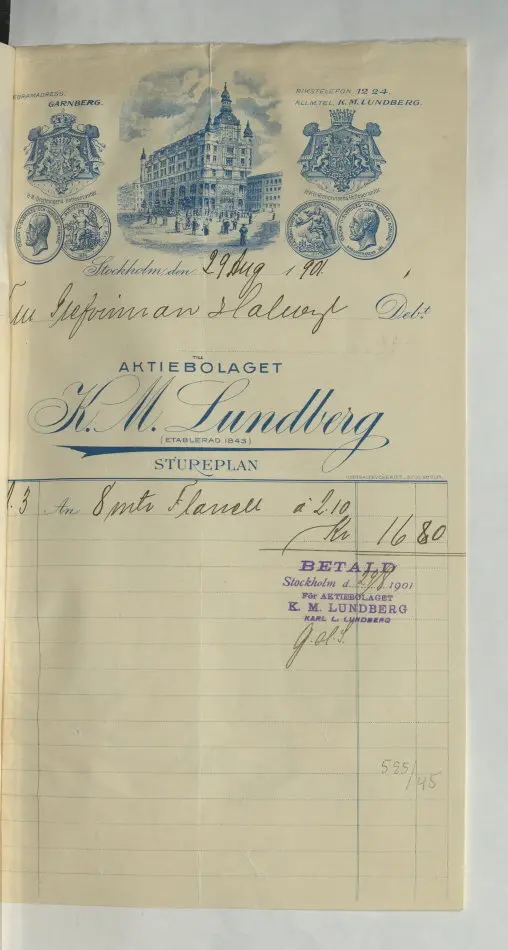 GARNBERG.
RIKSTELEFON 12 24.
ALLM.TEL. K. M. LUNDBERG.
Stockholm den 29 Aug 1901.
Grefvinnan Debt
TILL
AKTIEBOLAGET
K. M. Lundberg
(ETABLERAD 1843)
STUREPLAN
3 An 8 mtr Flanell á 2.10
Kr 16 80
BETALD
Stockholm d. 29/8 1901
För AKTIEBOLAGET
K. M. LUNDBERG
KARL L. LUNDBERG
585/45